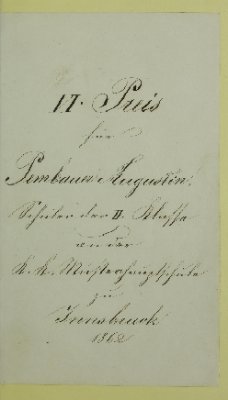 II. Preis
für
Pembaur Augustin.
Schüler der II. Klasse
an der
k. k. Musterhauptschule
zu
Innsbruck
1862